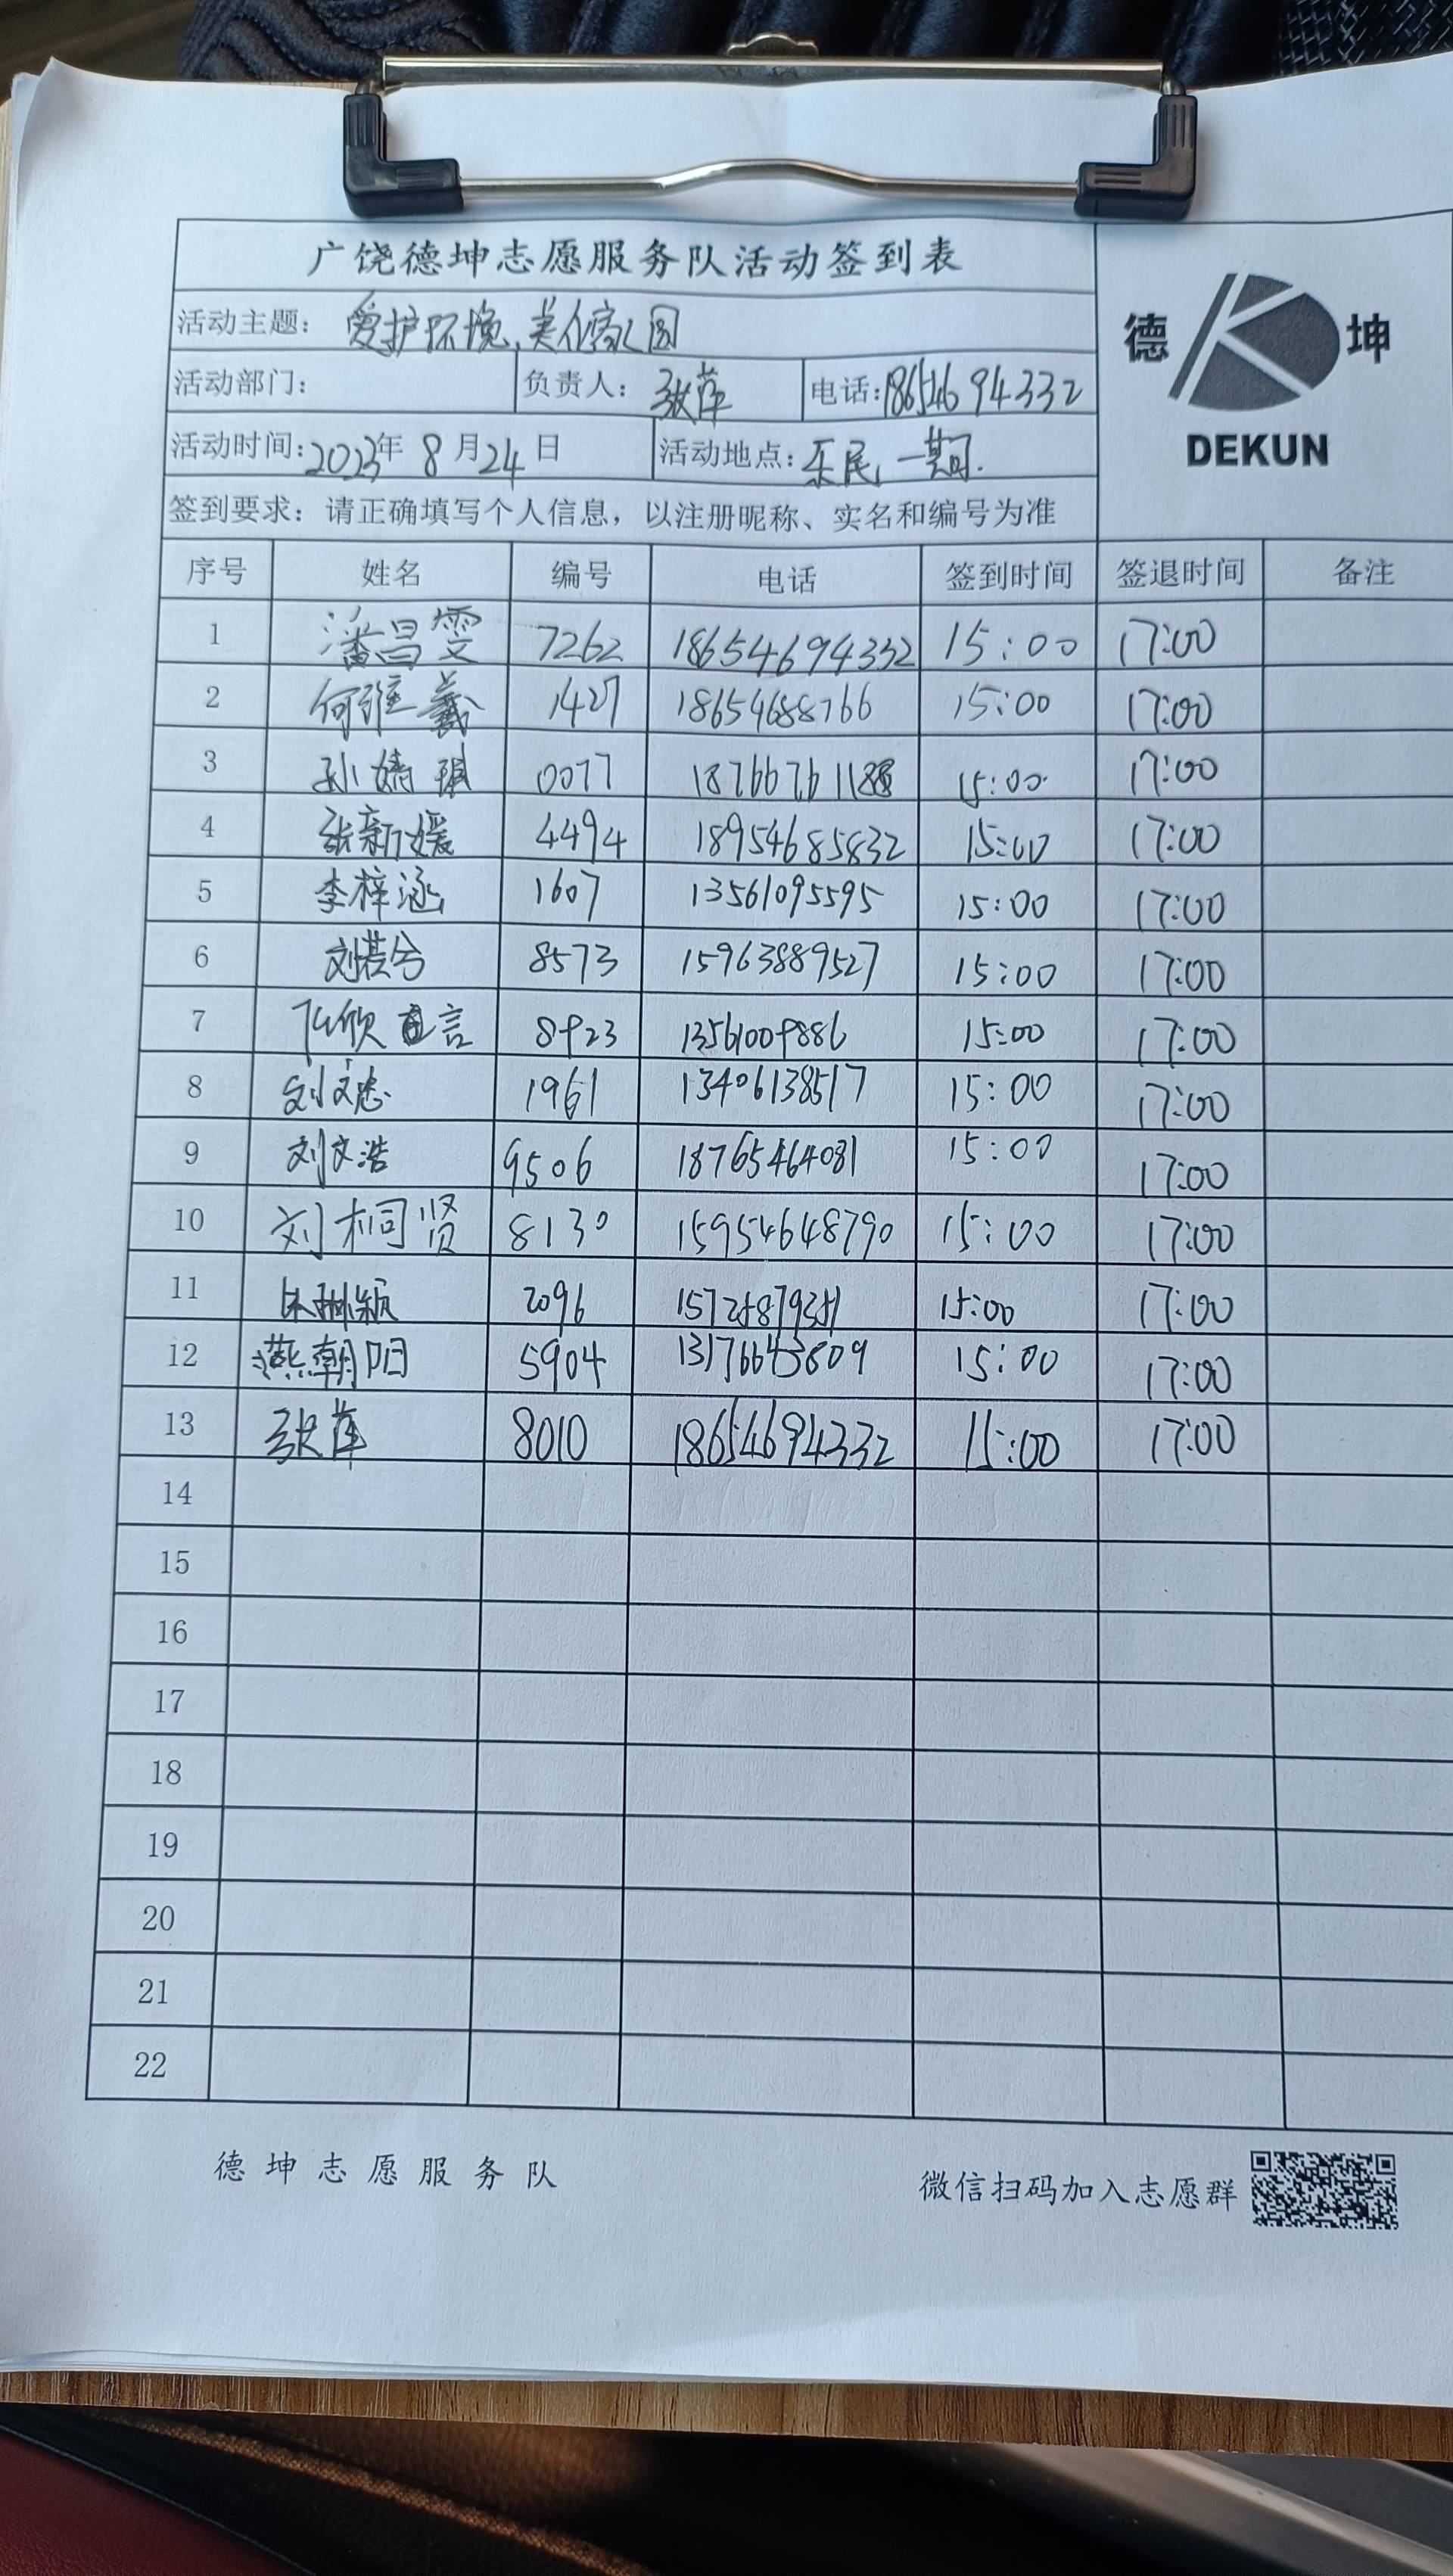 广饶德坤志愿服务队活动签到表
德 坤
DEKUN
活动主题：爱护环境、美化家园
活动部门： 负责人：张萍 电话：18654694332
活动时间：2023年8月24日 活动地点：乐民一期.
签到要求：请正确填写个人信息，以注册昵称、实名和编号为准
序号 姓名 编号 电话 签到时间 签退时间 备注
1 潘昌雯 7262 18654694332 15:00 17:00
2 何维羲 1427 18654688766 15:00 17:00
3 孙婧琪 0077 15:00 17:00
4 张新媛 4494 18954685832 15:00 17:00
5 李梓涵 1607 13561095595 15:00 17:00
6 刘若兮 8573 15963889527 15:00 17:00
7 8923 13561009886 15:00 17:00
8 刘文忠 1961 13406138517 15:00 17:00
9 刘文浩 9506 18765464081 15:00 17:00
10 刘桐贤 8130 15954648790 15:00 17:00
11 2096 15:00 17:00
12 燕朝阳 5904 13176643809 15:00 17:00
13 张萍 8010 18654694332 15:00 17:00
14
15
16
17
18
19
20
21
22
德坤志愿服务队 微信扫码加入志愿群